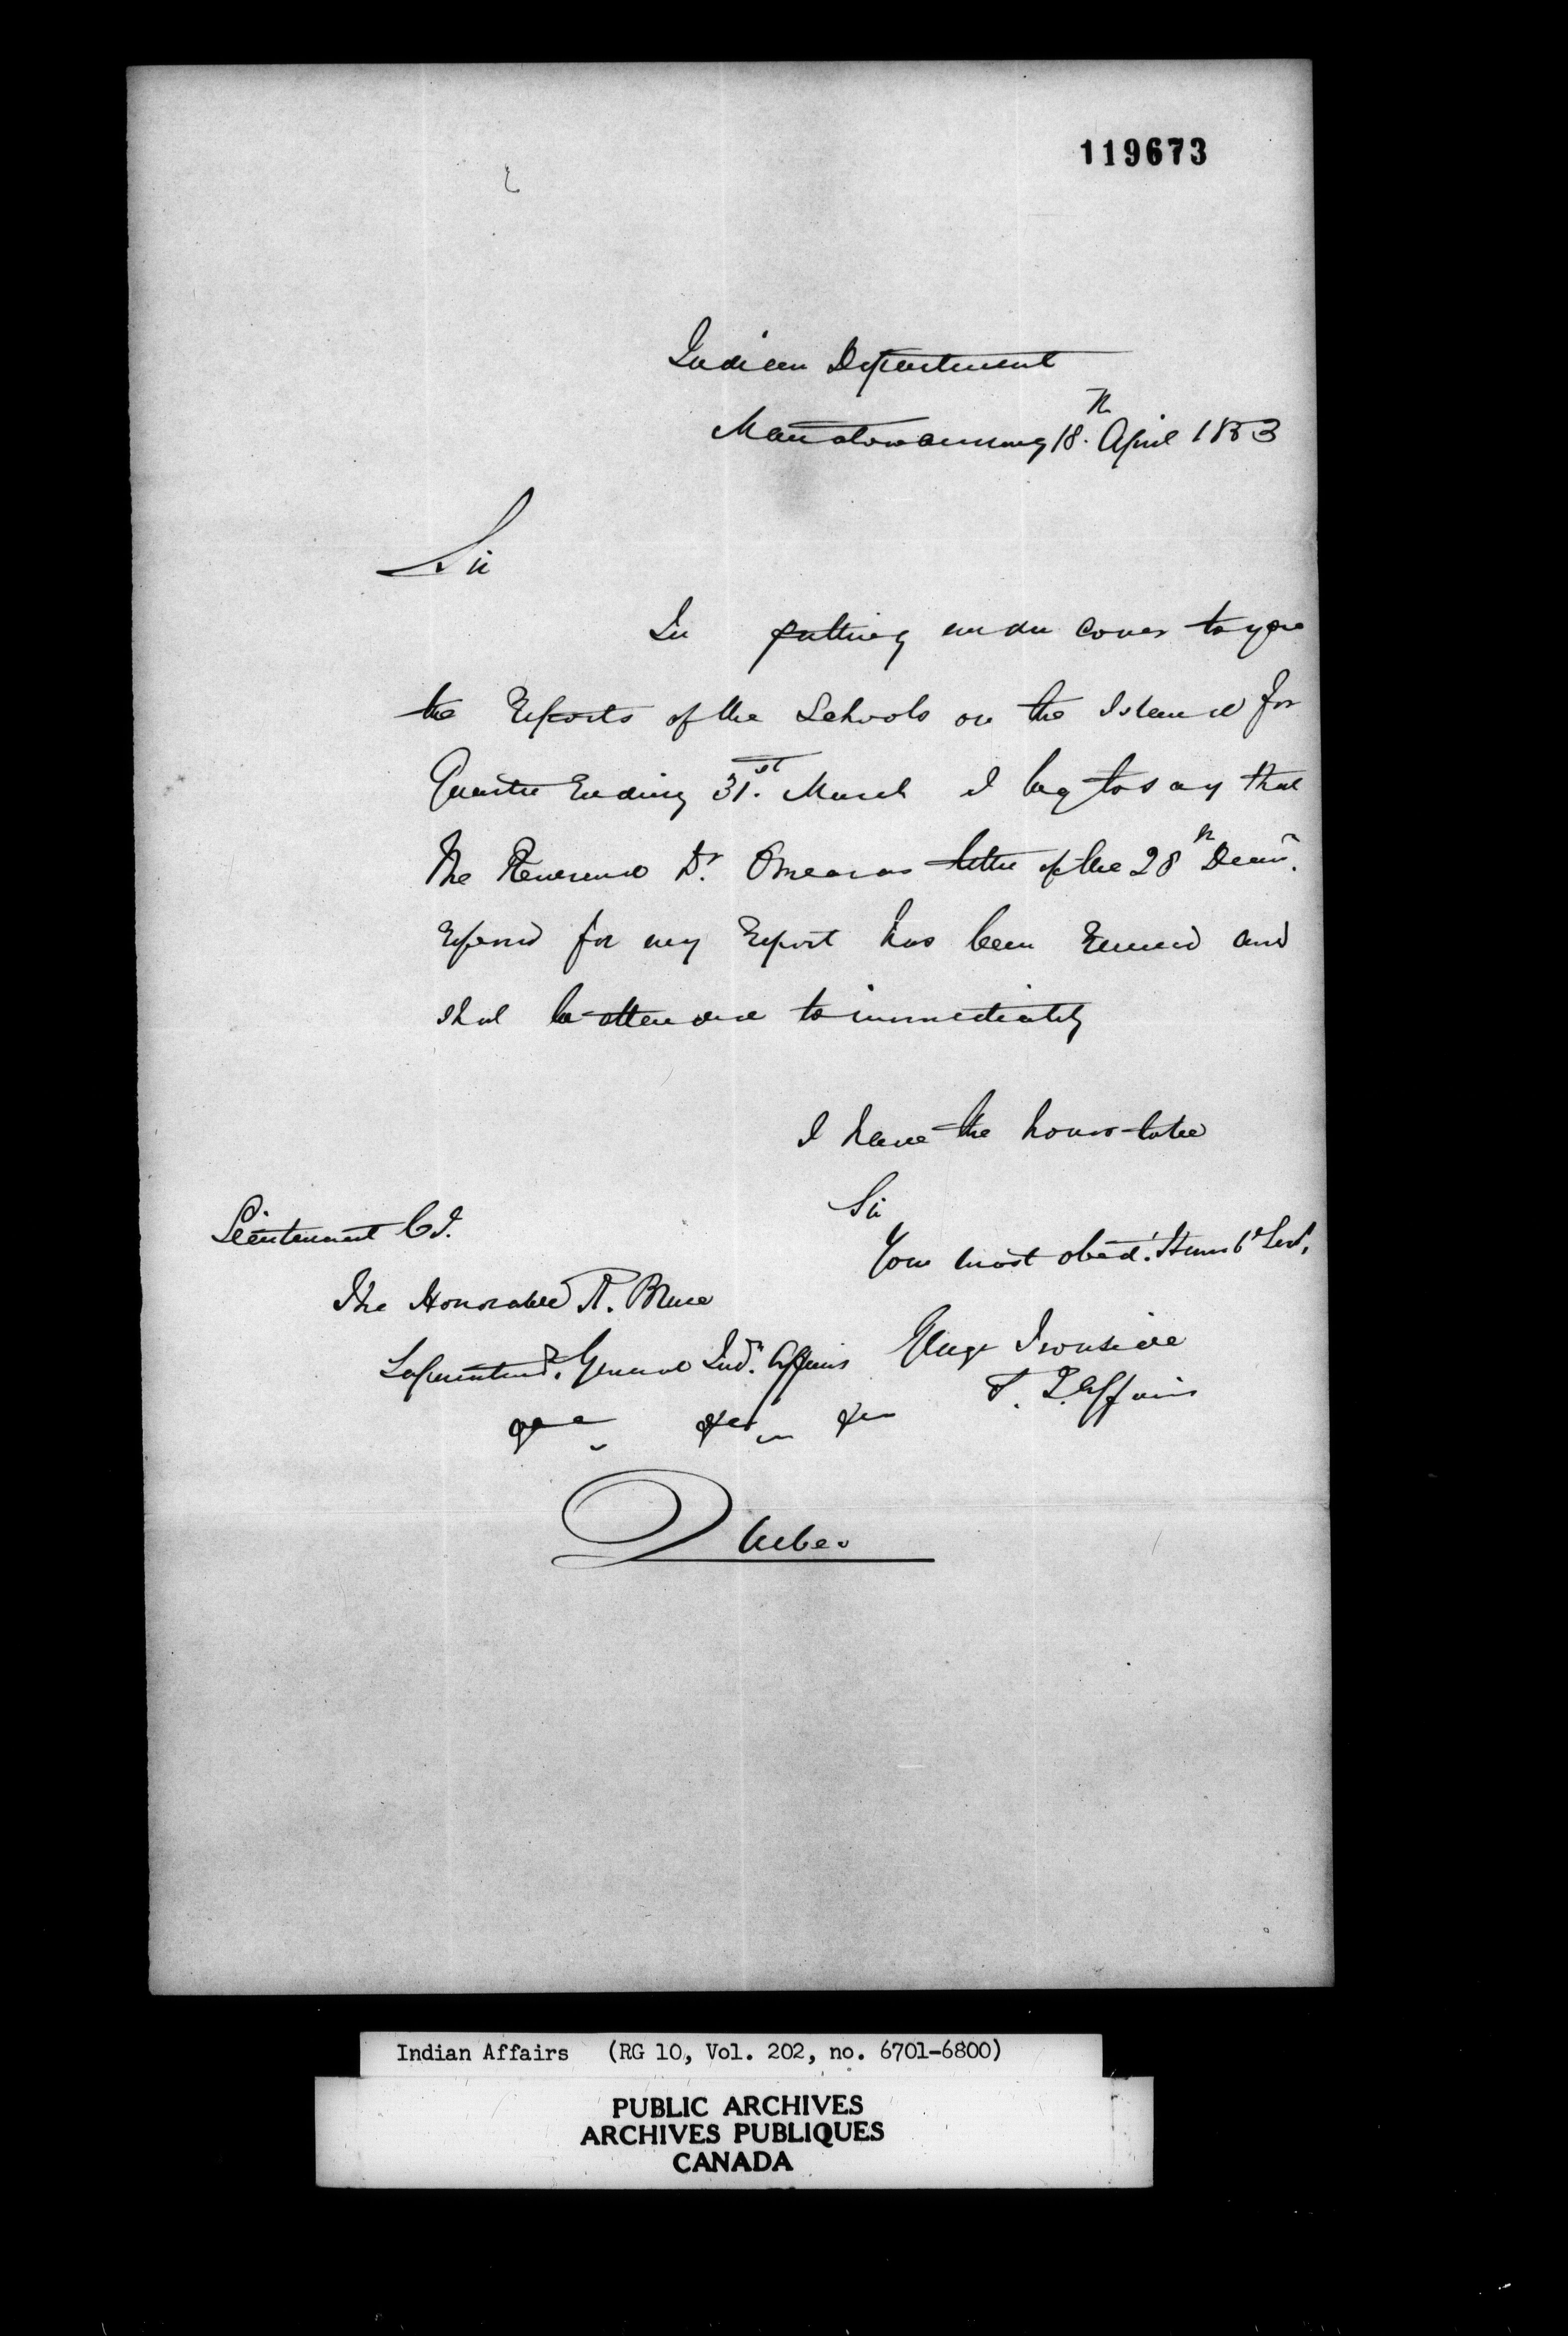 119673
Indian Department
Manatowanning 18.th April 1853
Sir
In putting under cover to you
the Reports of the Schools on the Island for
Quarter Ending 31.st March I beg to say that
The Reverend Dr. Omearas letter of the 28th Decemr.
referred for my Report has been received and
shal be attended to immediately
I have the honor to be
Sir
Your most obedt. Humbl Servt.
George Ironside
S. I. Affairs
Lieutenant Col.
The Honorable R. Bruce
Superintendt. General Indn. Affairs
&c &c &c
Quebec
Indian Affairs (RG 10, Vol. 202, no. 6701-6800)
PUBLIC ARCHIVES
ARCHIVES PUBLIQUES
CANADA